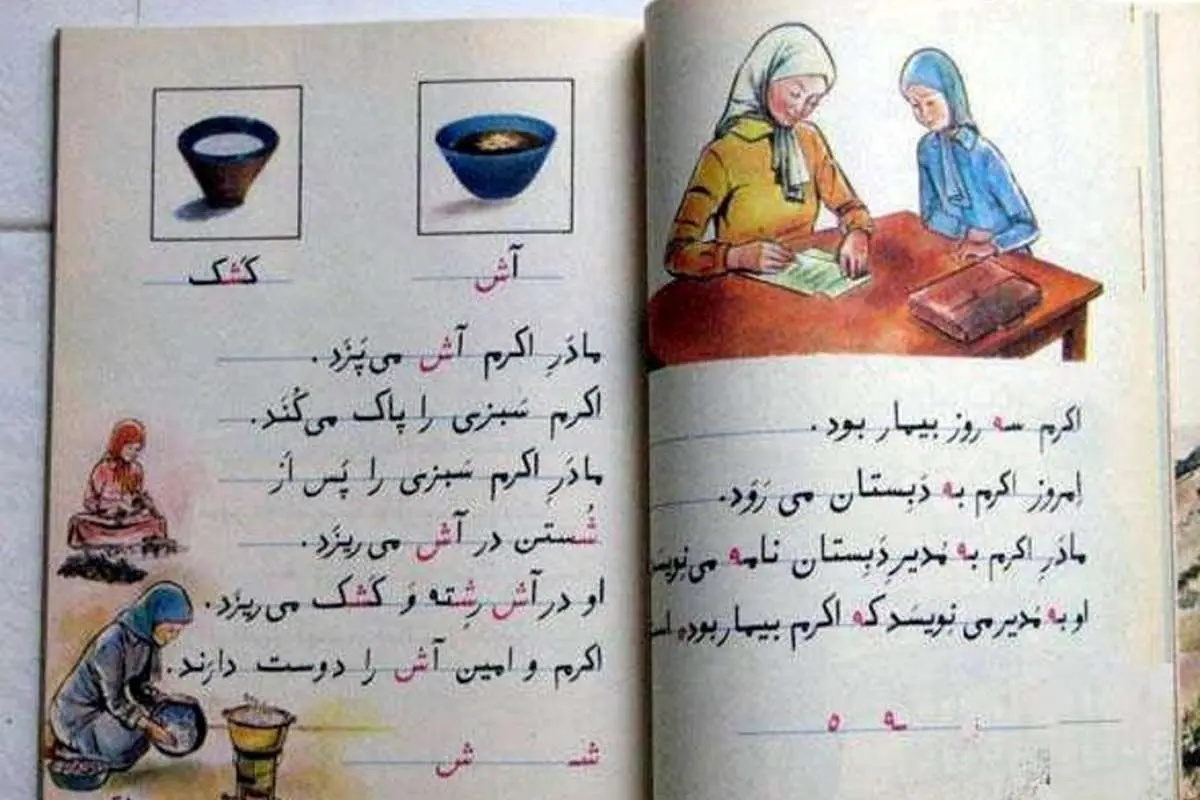 اکرم سه روز بیمار بود.
اِمروز اکرم به دَبِستان می رَوَد.
مادَرِ اکرم به مُدیرِ دَبِستان نامه
او به مُدیر می نِویسَد که اکرم بیمار بوده
ه ـه
آش
کَشک
مادَرِ اکرم آش می‌پَزَد.
اکرم سَبزی را پاک می‌کُنَد.
مادَرِ اکرم سَبزی را پَس اَز
شُستن در آش می‌ریزَد.
او در آش رِشته وَ کَشک می‌ریزَد.
اکرم و امین آش را دوست دارَند.
شـ ش